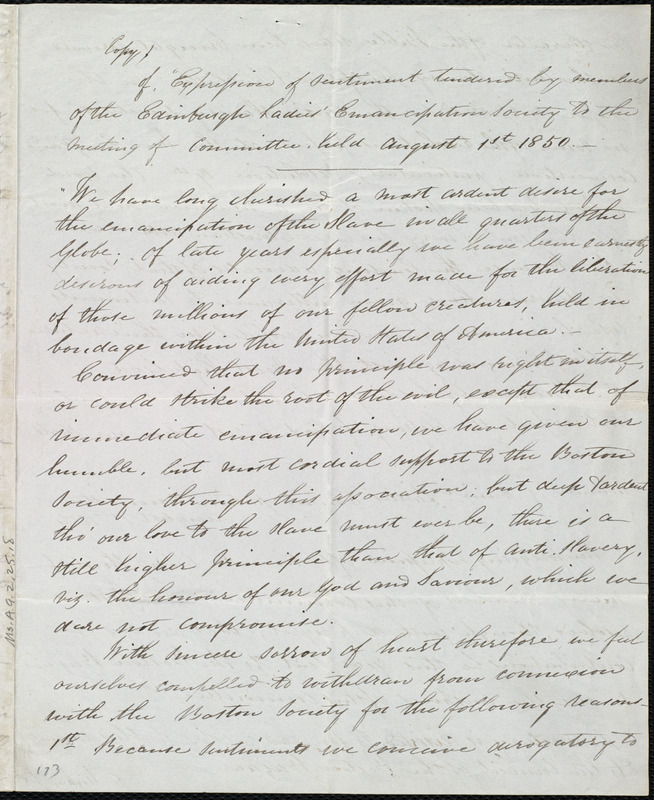 Copy,
of "Expression of sentiment tendered by members
of the Edinburgh Ladies' Emancipation Society to the
meeting of Committee. held August 1st 1850.—
"We have long cherished a most ardent desire for
the emancipation of the Slave in all quarters of the
Globe; of late years especially we have been earnestly
desirous of aiding every effort made for the liberation
of those millions of our fellow creatures, held in
bondage within the United States of America.—
Convinced that no principle was right in itself,
or could strike the root of the evil, except that of
immediate emancipation, we have given our
humble, but most cordial support to the Boston
Society, through this association; but deep & ardent
tho' our love to the Slave must ever be, there is a
still higher principle than that of Anti. Slavery,
viz. the honour of our God and Saviour, which we
dare not compromise.
With sincere sorrow of heart therefore we feel
ourselves compelled to withdraw from connexion
with the Boston Society for the following reasons—
1st Because sentiments we conceive derogatory to
173
Ms.A.9.2.25.18